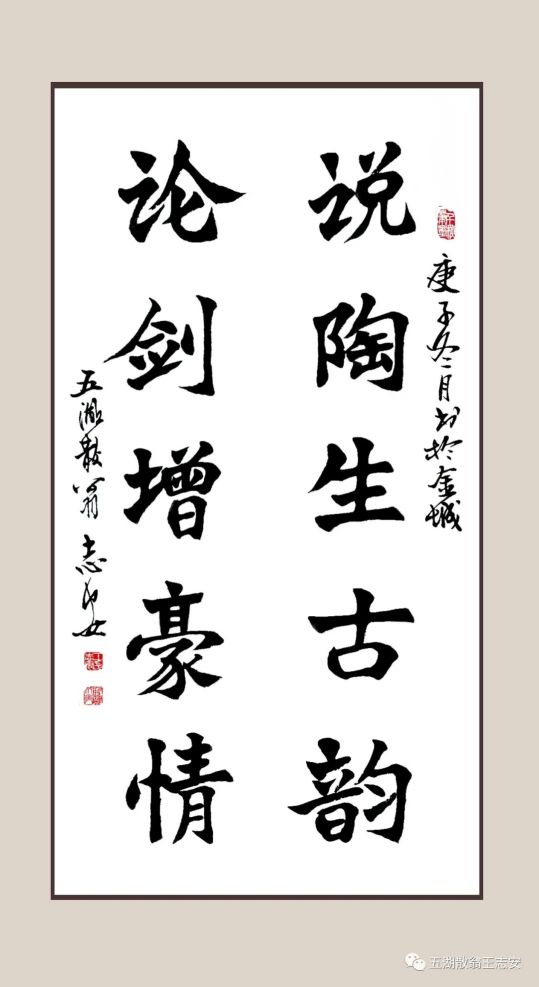 庚子冬月书于金城
说陶生古韵
论剑增豪情
五湖散翁志安
五湖散翁王志安